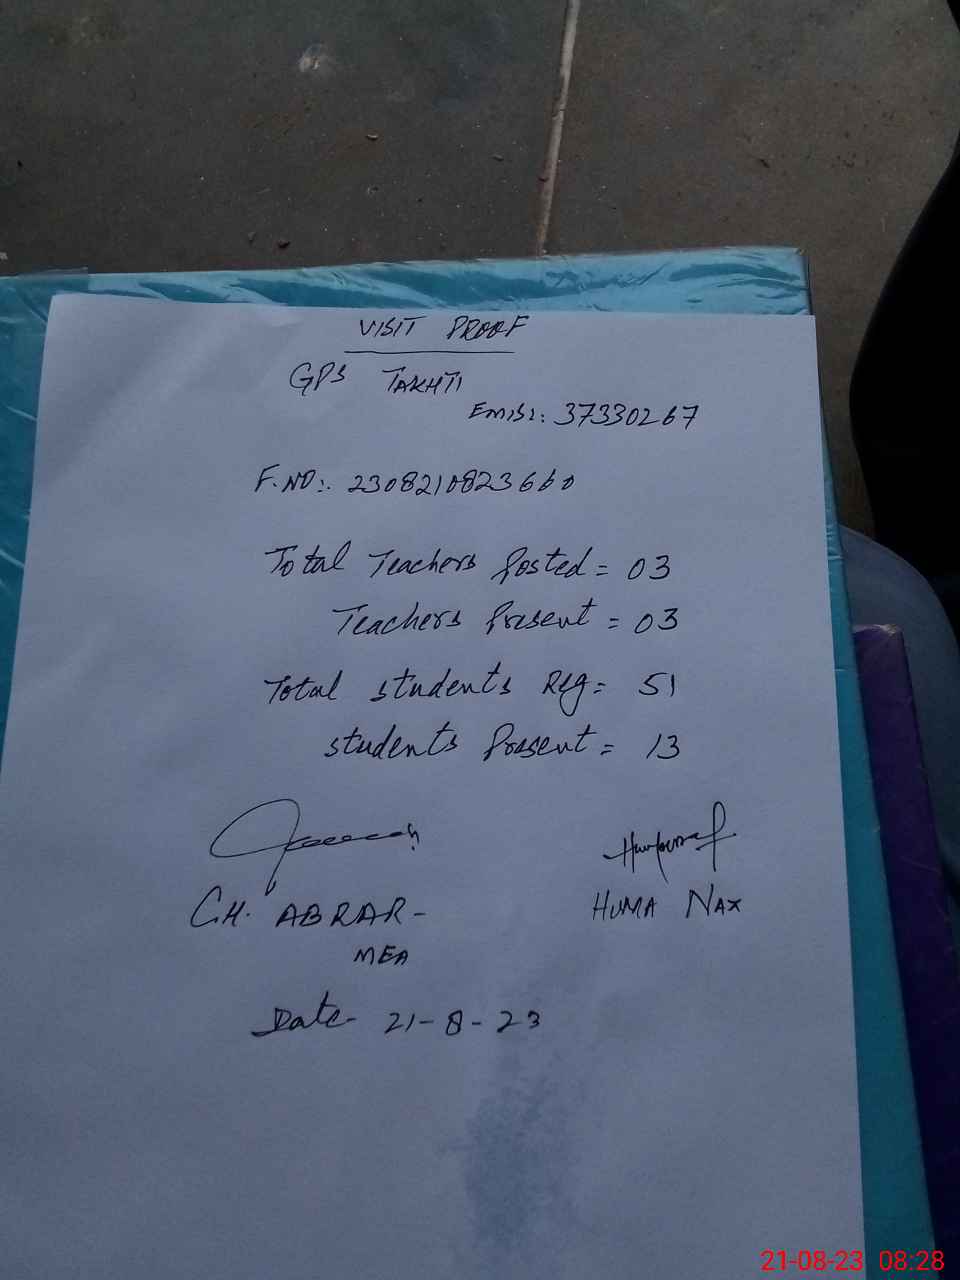 VISIT PROOF
GPS TAKHTI
EMIS: 37330267
F.NO:. 2308210823660
Total Teachers Posted = 03
Teachers Present = 03
Total students Reg = 51
students Present = 13
C.H. ABRAR - HUMA NAX
MEA
Date - 21-8-23
21-08-23 08:28